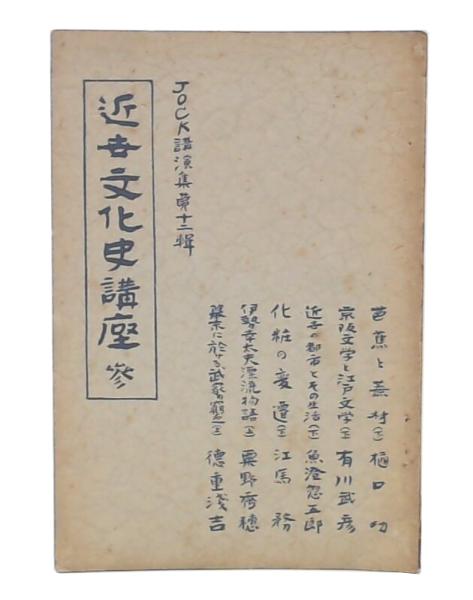 JOCK講演集第十二輯
近世文化史講座 參
芭蕉と蕪村(上) 樋口功
京阪文学と江戸文学(上) 有川武彦
近世の都市とその生活(下) 魚澄惣五郎
化粧の変遷(上) 江馬務
伊勢幸太夫漂流物語(上) 粟野
幕末に於ける武家の窮 德重淺吉